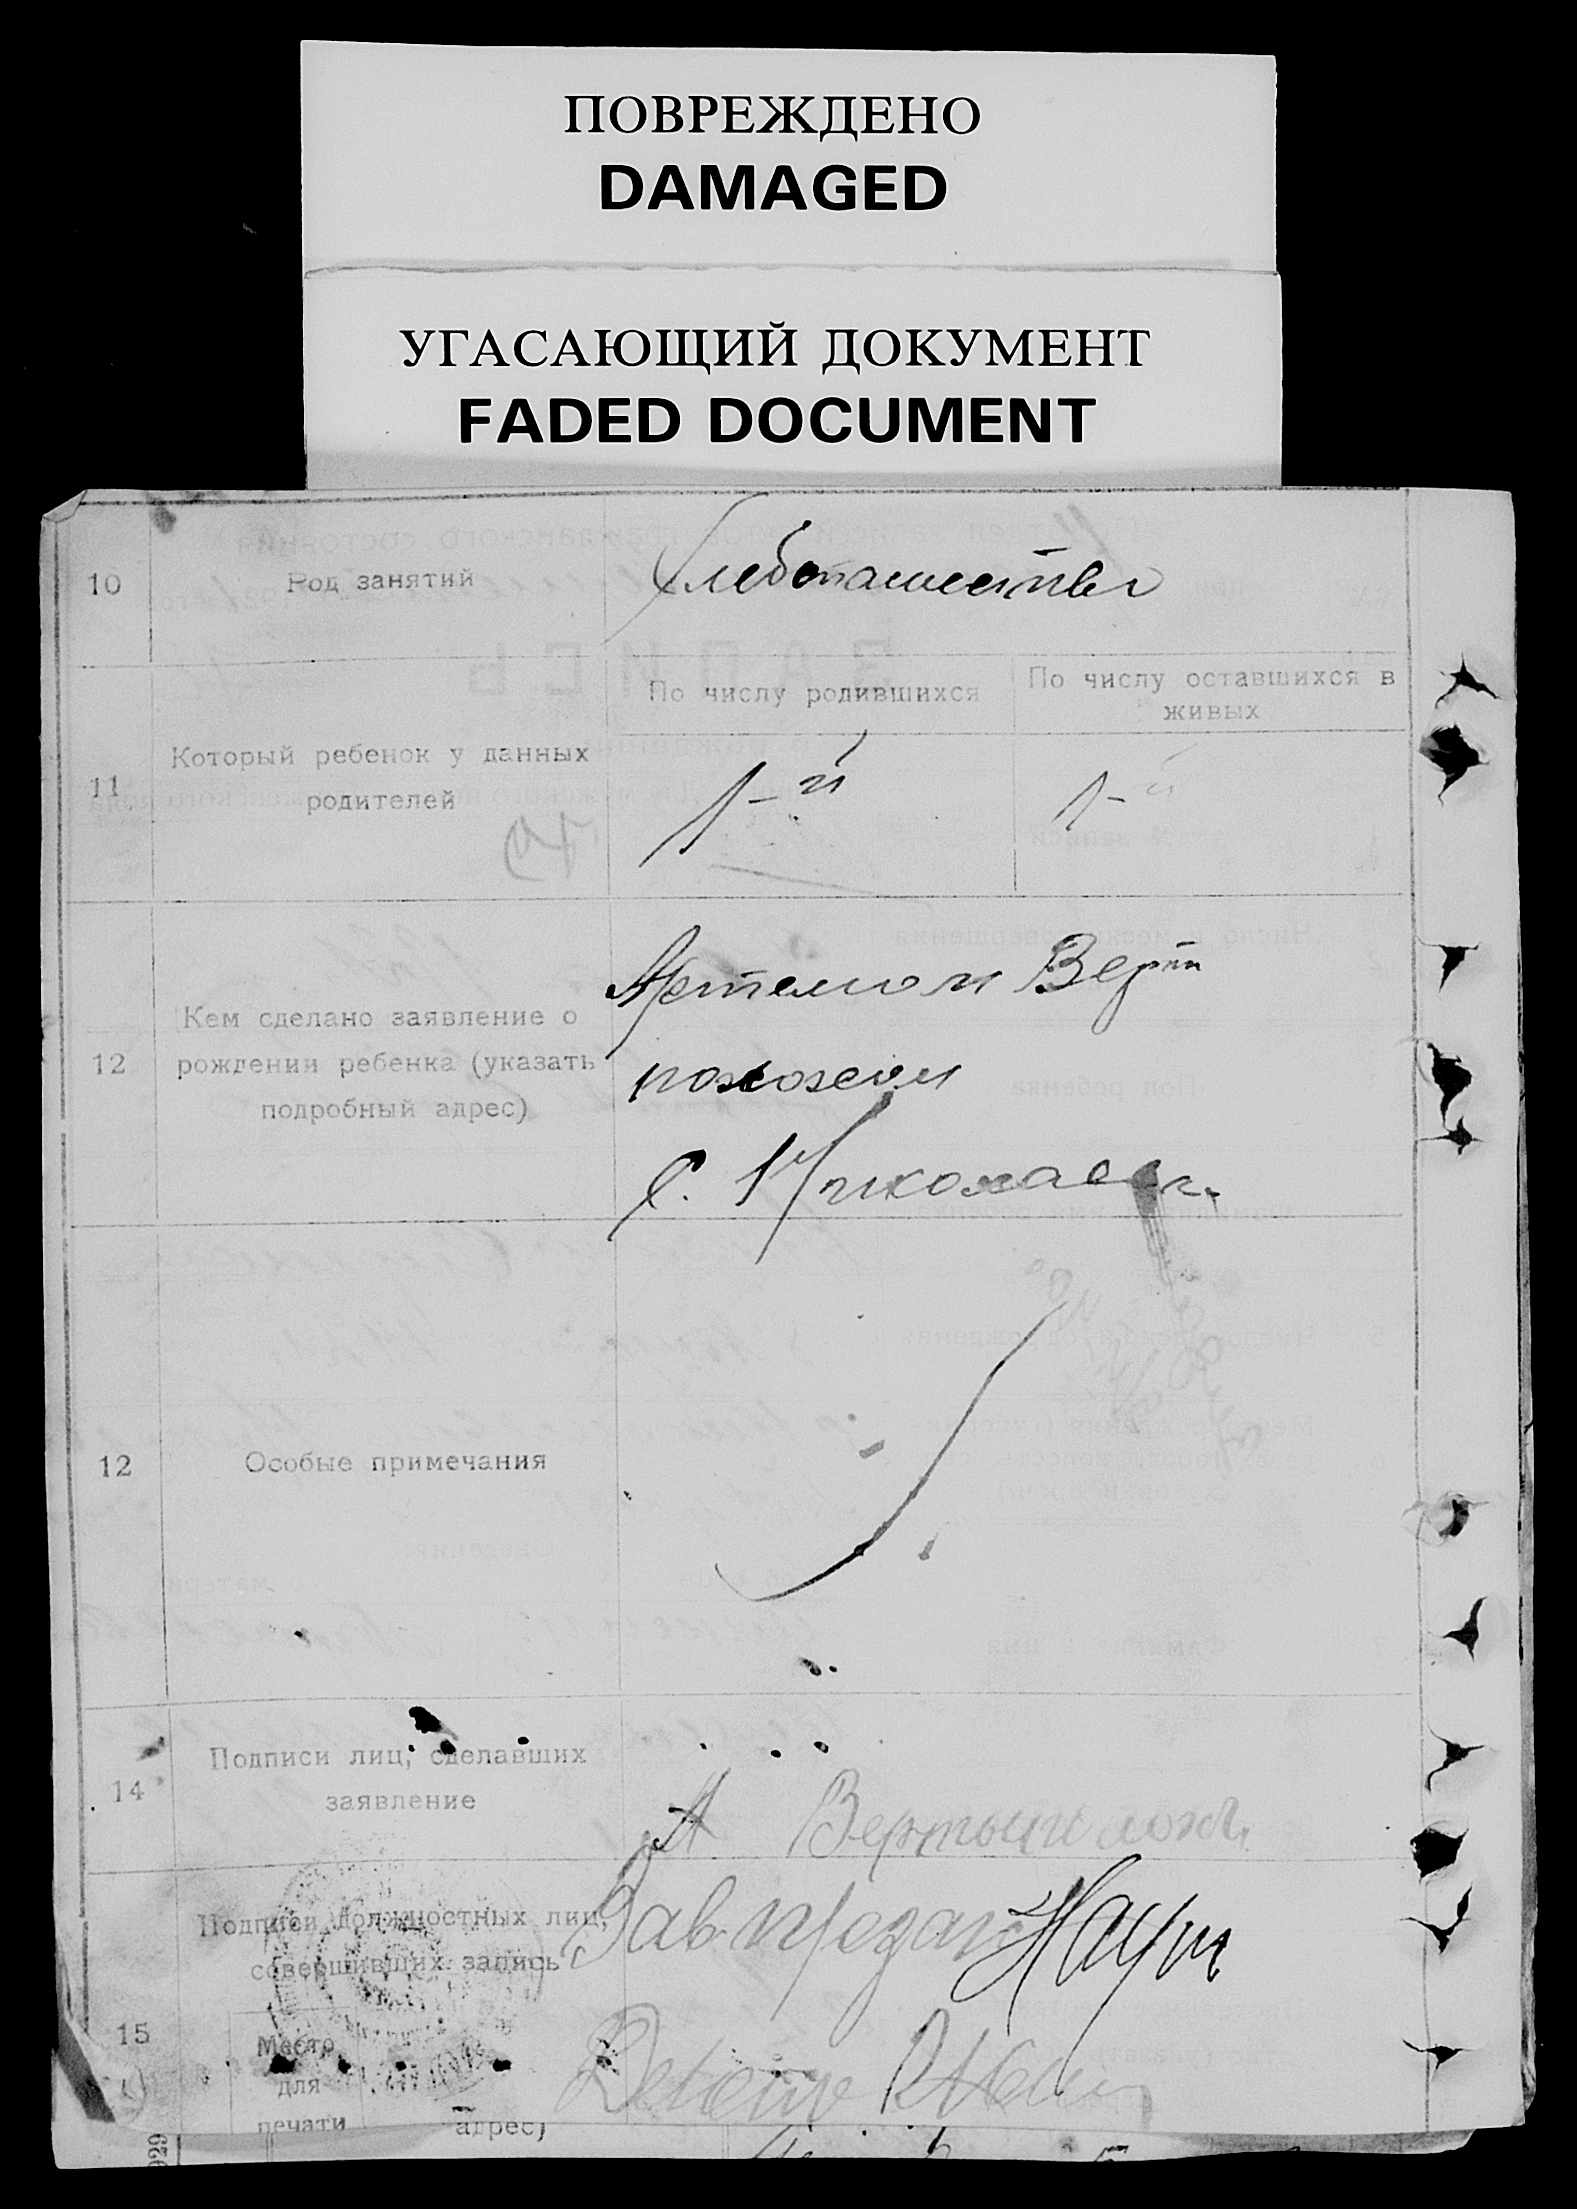 ПОВРЕЖДЕНО
DAMAGED
УГАСАЮЩИЙ ДОКУМЕНТ
FADED DOCUMENT
10 Род занятий Хлебопашество
11 Который ребенок у данных
родителей
По числу родившихся
По числу оставшихся в
живых
1-й 1-й
12 Кем сделано заявление о
рождении ребенка (указать
подробный адрес)
Артемом Верти
полохом
С. Николаевк.
12 Особые примечания
14 Подписи лиц, сделавших
заявление
А Вертыполох
15 Подписи должностных лиц,
совершивших запись
Зав
Место
для
печати
адрес)
929